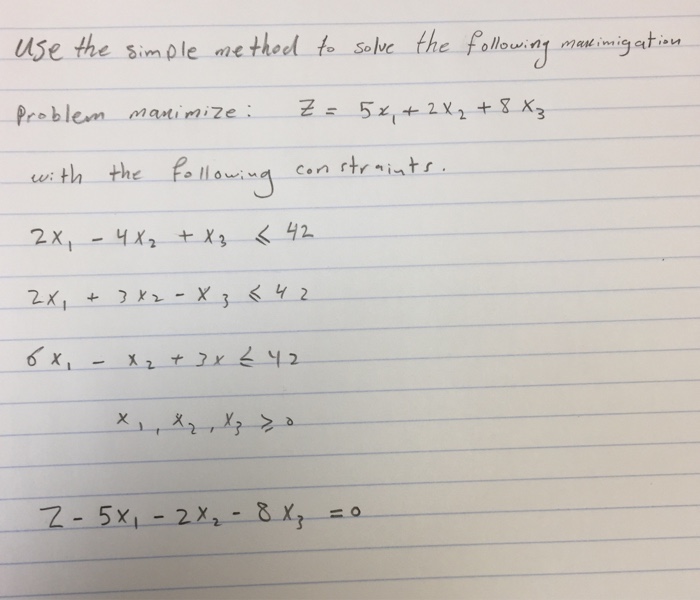 Use the simple method to solve the following maximigation
Problem maximize: Z = 5x₁ + 2x₂ + 8x₃
with the following constraints.
2x₁ - 4x₂ + x₃ ≤ 42
2x₁ + 3x₂ - x₃ ≤ 42
6x₁ - x₂ + 3x ≤ 42
x₁, x₂, x₃ ≥ 0
Z - 5x₁ - 2x₂ - 8x₃ = 0